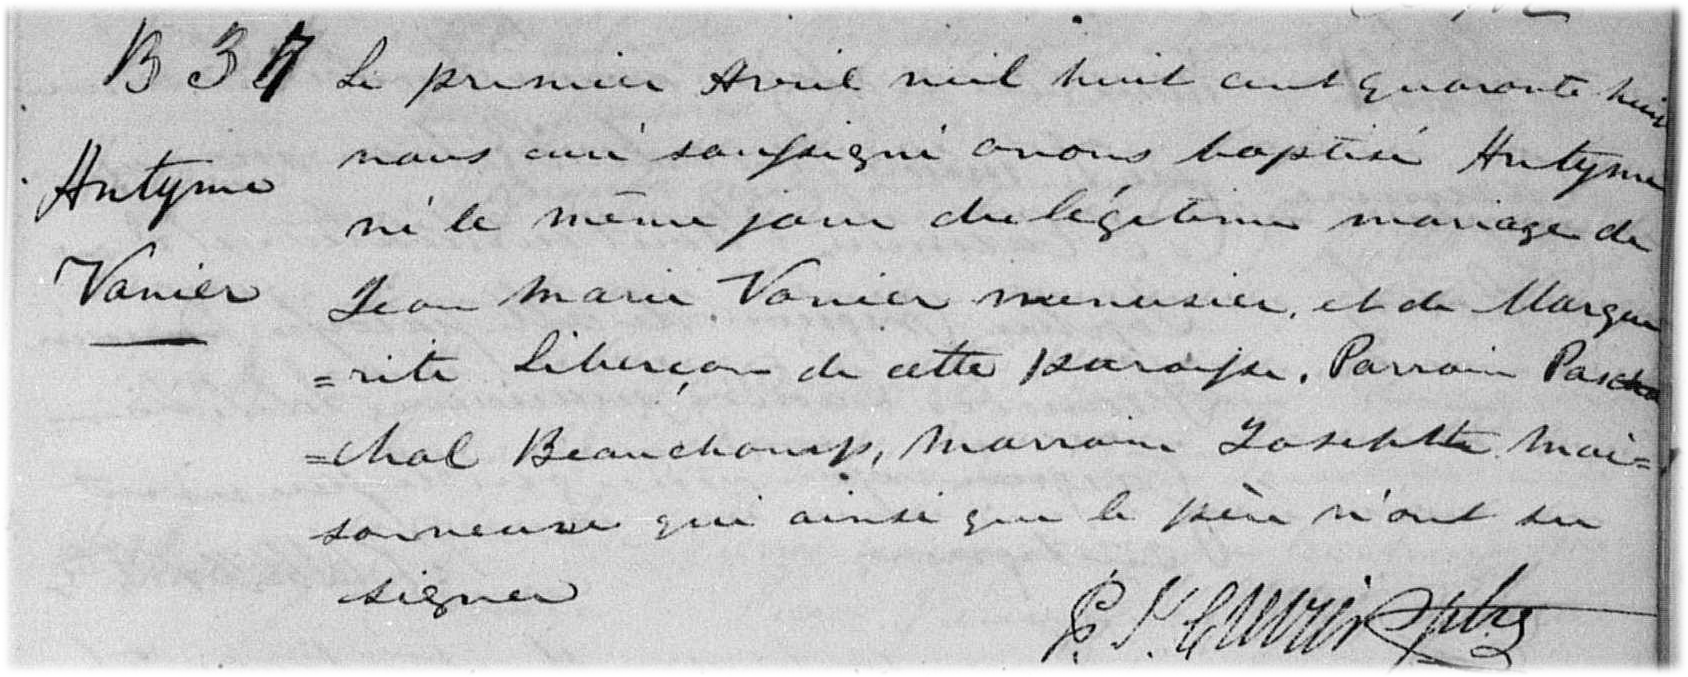 B 37
Antyme
Vanier
Le premier Avril mil huit cent quarante huit
nous curé soussigné avons baptisé Antyme
né le même jour du légitime mariage de
Jean Marie Vanier menusier, et de Margue
=rite Liberçon de cette paroisse. Parrain Pas
=chal Beauchamp, Marraine Josephte Mai=
sonneuve qui ainsi que le père n'ont su
signer